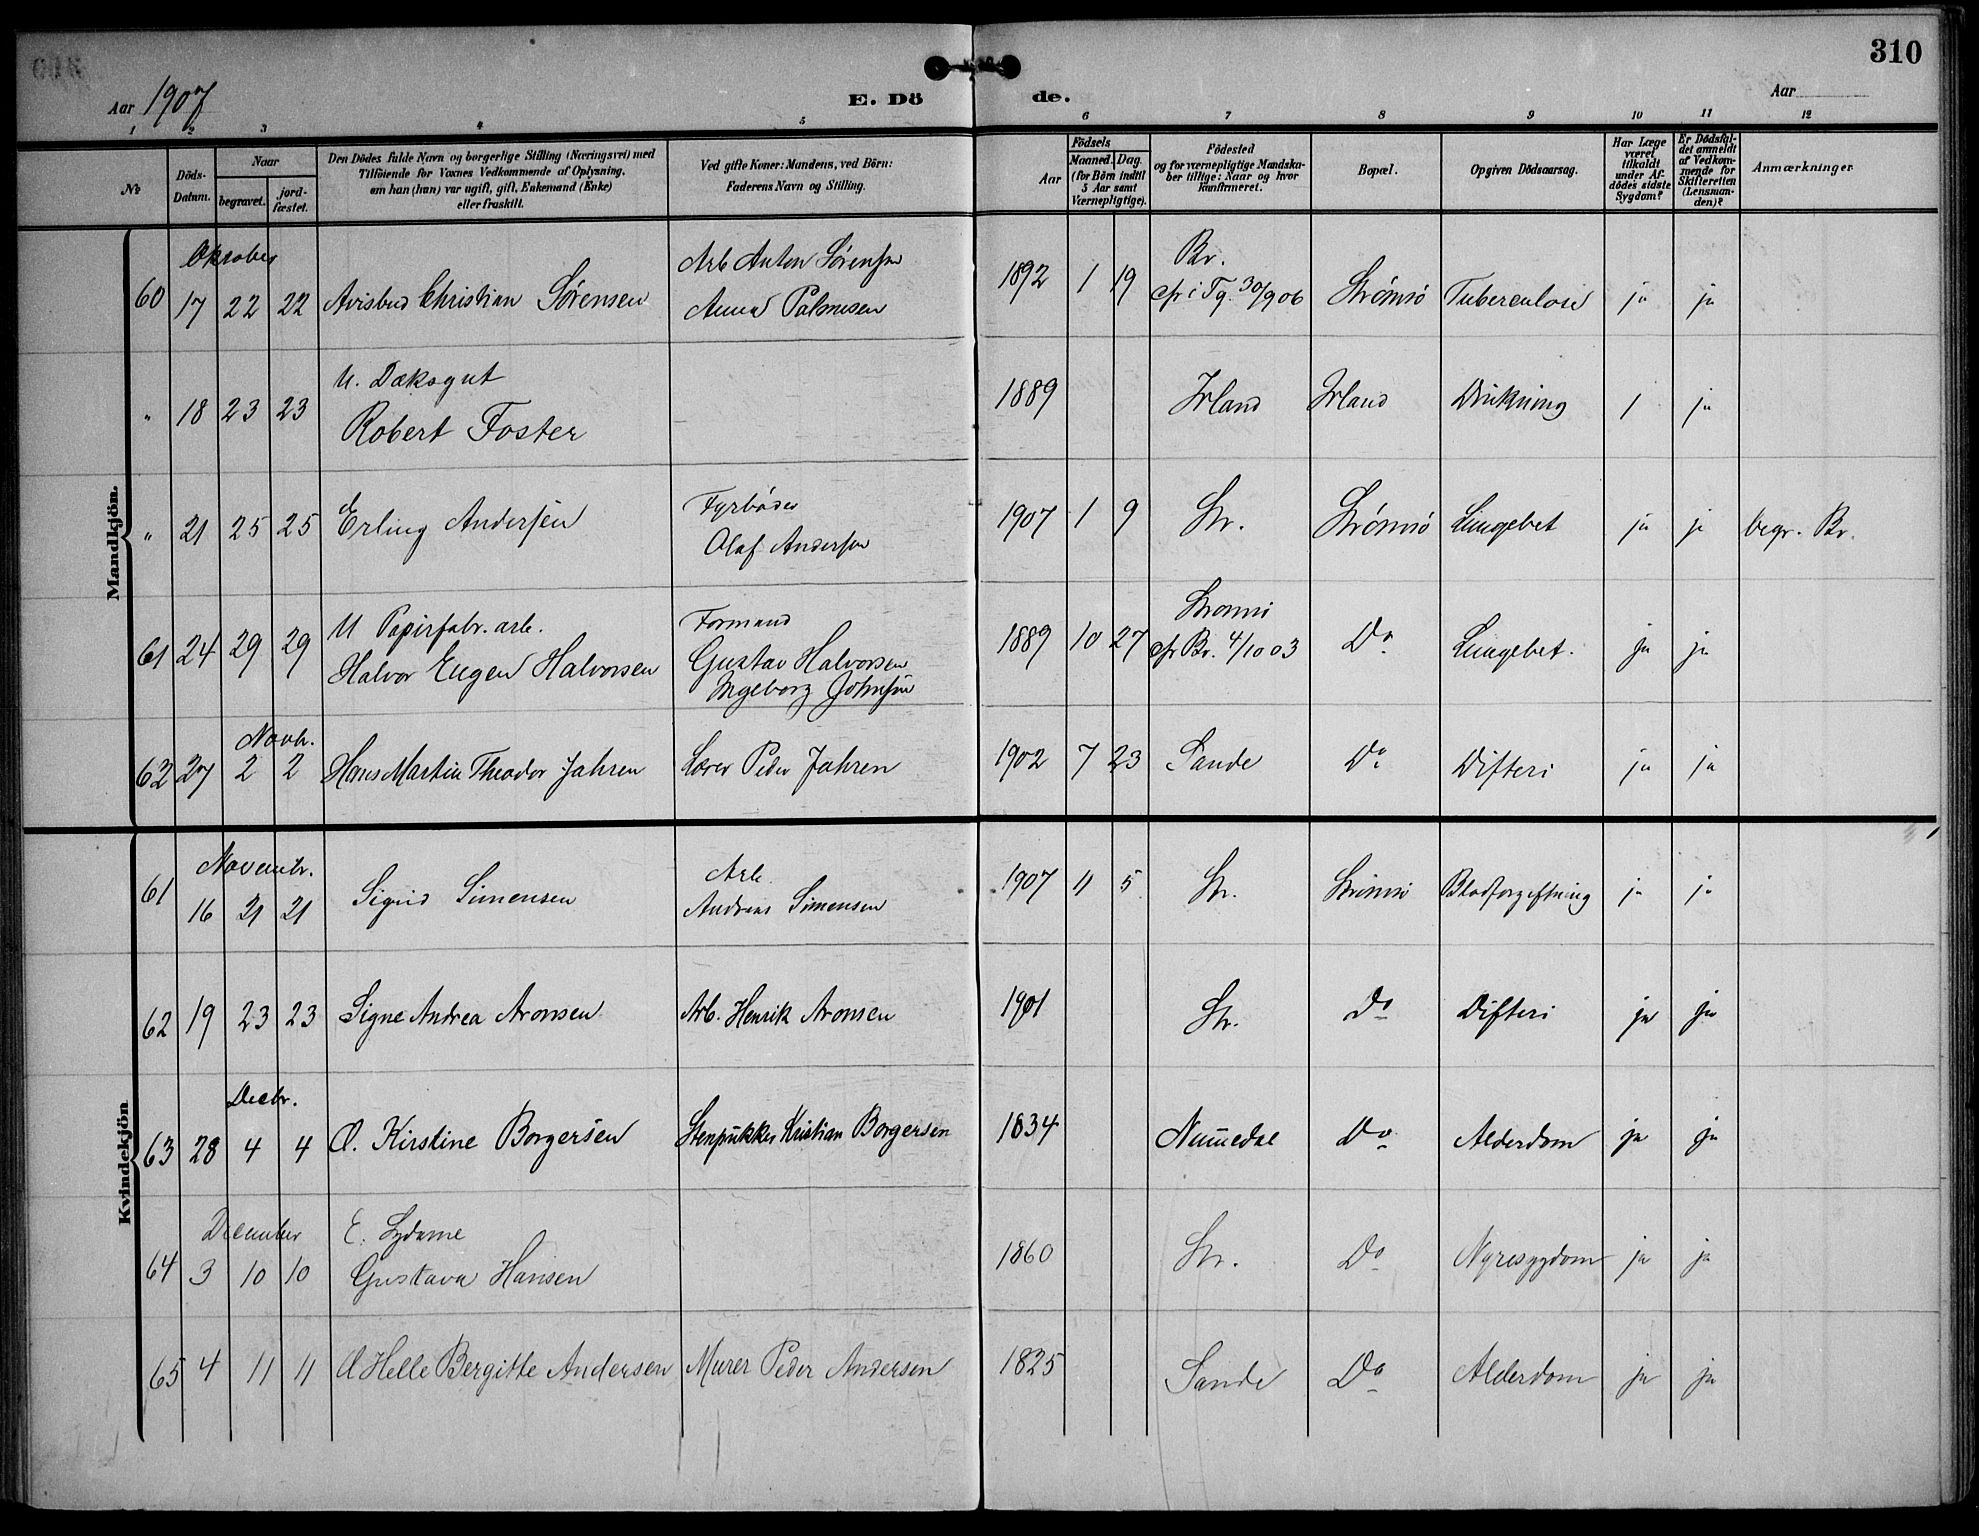 310
Aar 1907
E. Dö
de.
Aar
1 2 3 4 5 6 7 8 9 10 11 12
№
Döds-
Datum.
Naar
begravet.
jord-
fæstet.
Den Dödes fulde Navn og borgerlige Stilling (Næringsvei) med
Tilföiende for Voxnes Vedkommende af Oplysning,
om han (hun) var ugift, gift, Enkemand (Enke)
eller fraskilt.
Ved gifte Koner: Mandens, ved Börn:
Faderens Navn og Stilling.
Födsels
Aar
Maaned. Dag.
(for Börn indtil
5 Aar samt
Værnepligtige).
Födested
og for værnepligtige Mandska-
ber tillige: Naar og hvor
konfirmeret.
Bopæl.
Opgiven Dödsaarsag.
Har Læge
været
tilkaldt
under Af-
dödes sidste
Sygdom?
Er Dödsfal-
det anmeldt
af Vedkom-
mende for
Skifteretten
(Lensman-
den)?
Anmærkninger
Mandkjön.
Oktober
60 17 22 22 Christian Sørensen
Arb Anton Sørensen
Anna Palmesen
1892 1 19
Br.
30/906
Strømsø Tuberculose ja ja
" 18 23 23
U. Dæksgut
Robert Foster
1889 Irland Irland Drukning / ja
" 21 25 25 Erling Andersen
Fyrbøder
Olaf Andersen
1907 1 9 Str. Strømsø Lungebet ja ja begr. Br.
61 24 29 29
U Papirfabr. arb.
Halvor Eugen Halvorsen
Formand
Gustav Halvorsen
Ingeborg Johnsen
1889 10 27
Strømsø
Br. 4/10 03
Do Lungebet. ja ja
Novbr.
62 27 2 2 Hans Martin Theodor Jahren Lærer Peder Jahren 1902 7 23 Sande Do Difteri ja ja
Kvindekjön
Novembr.
61 16 21 21 Sigrid Simensen
Arb.
Andreas Simensen
1907 11 5 Str. Strømsø Blodforgiftning ja ja
62 19 23 23 Signe Andrea Aronsen Arb. Henrik Aronsen 1901 Str. Do Difteri ja ja
Decbr.
63 28 4 4 G. Kirstine Borgersen Stenpukker Kristian Borgersen 1834 Numedal Do Alderdom ja ja
December
64 3 10 10
E. Sydame
Gustava Hansen
1860 Str. Do Nyresygdom ja ja
65 4 11 11 G Helle Bergitte Andersen Murer Peder Andersen 1825 Sande Do Alderdom ja ja